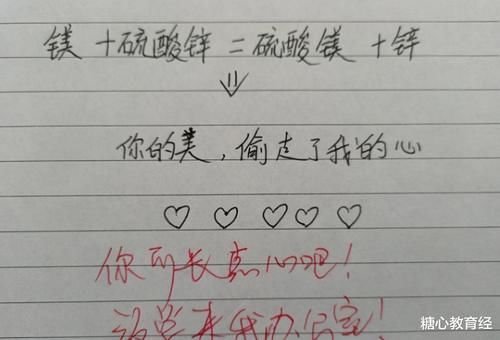 镁+硫酸锌=硫酸镁+锌
你的美,偷走了我的心
你可长点心吧!
来我办公室!
糖心教育经